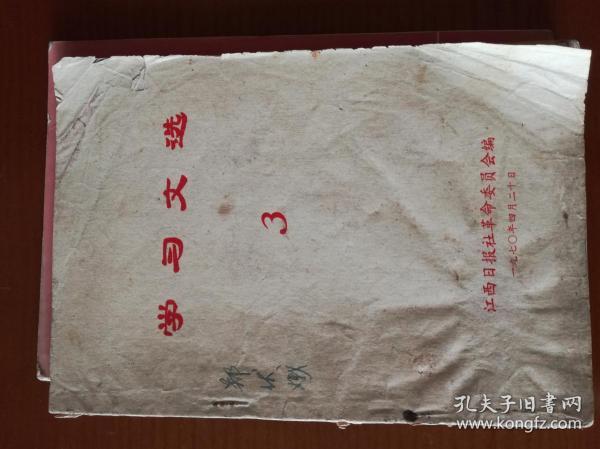 学习文选
3
江西日报社革命委员会编
一九七〇年四月二十日
孔夫子旧書网
www.kongfz.com